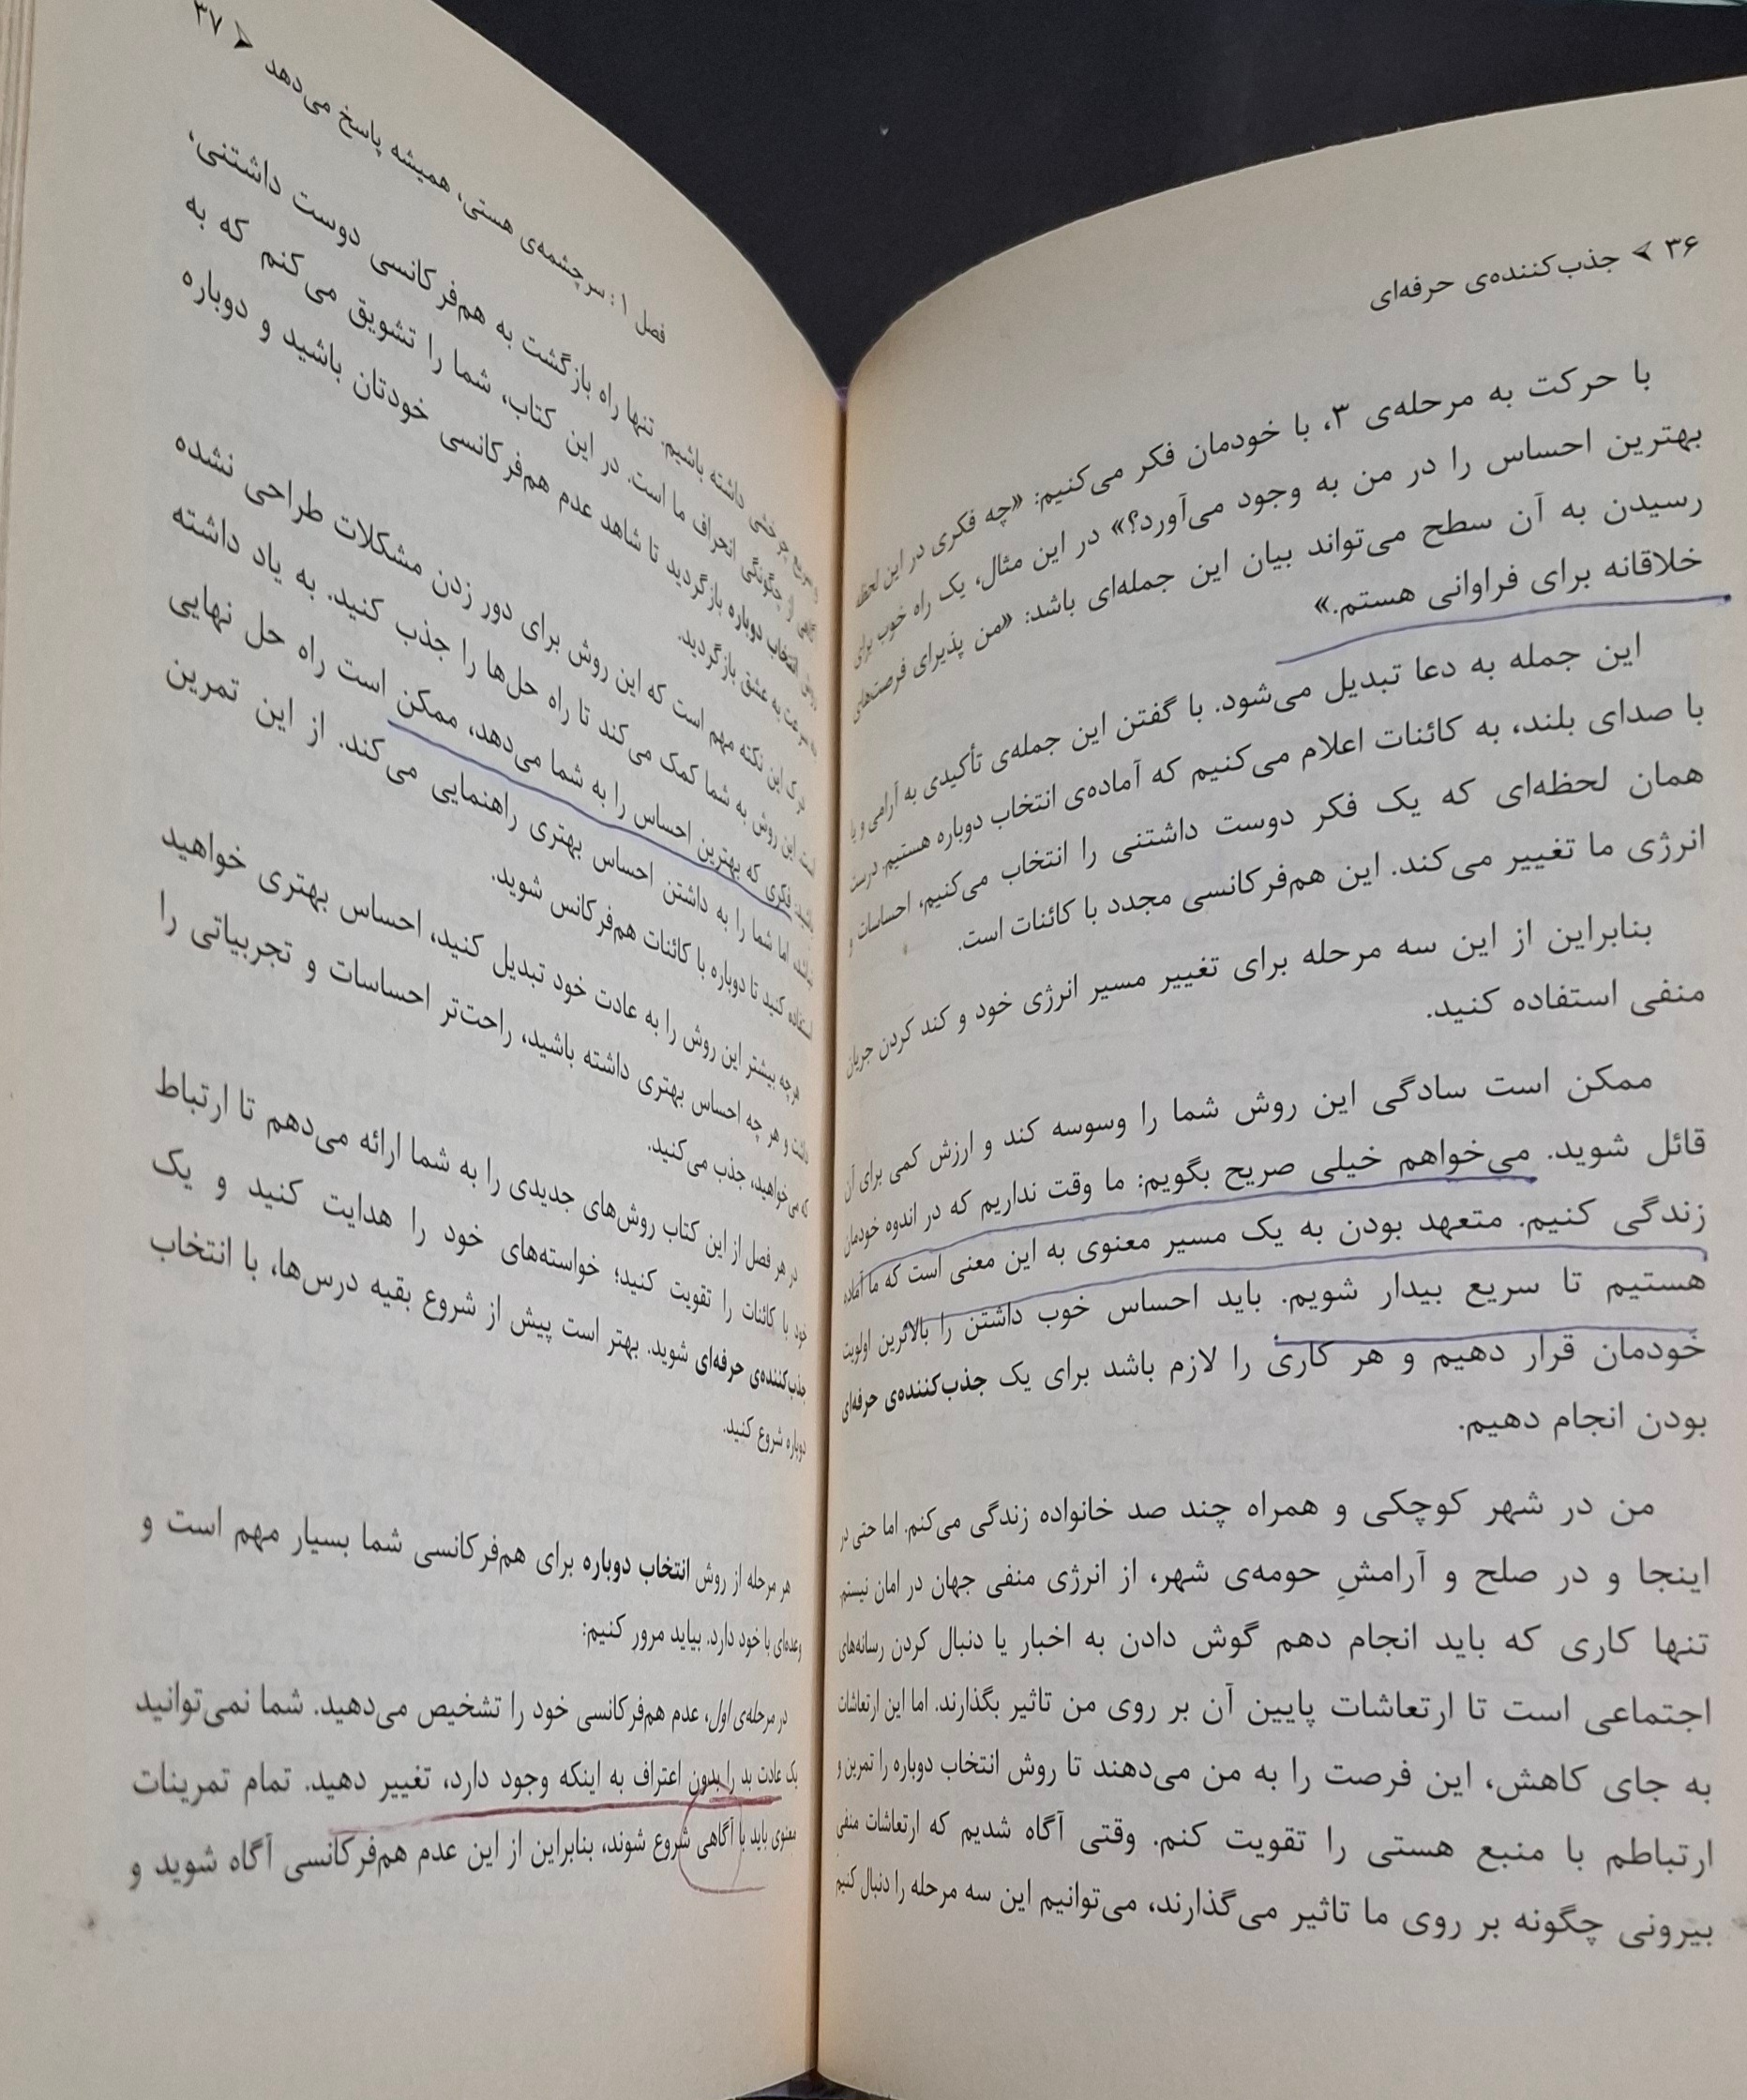 ۳۶ جذب‌کننده‌ی حرفه‌ای
با حرکت به مرحله‌ی ۳، با خودمان فکر می‌کنیم: «چه فکری در این لحظه
بهترین احساس را در من به وجود می‌آورد؟» در این مثال، یک راه خوب برای
رسیدن به آن سطح می‌تواند بیان این جمله‌ای باشد: «من پذیرای فرصت‌های
خلاقانه برای فراوانی هستم.»
این جمله به دعا تبدیل می‌شود. با گفتن این جمله‌ی تأکیدی به آرامی و یا
با صدای بلند، به کائنات اعلام می‌کنیم که آماده‌ی انتخاب دوباره هستیم. درست
همان لحظه‌ای که یک فکر دوست داشتنی را انتخاب می‌کنیم، احساسات و
انرژی ما تغییر می‌کند. این هم‌فرکانسی مجدد با کائنات است.
بنابراین از این سه مرحله برای تغییر مسیر انرژی خود و کند کردن جریان
منفی استفاده کنید.
ممکن است سادگی این روش شما را وسوسه کند و ارزش کمی برای آن
قائل شوید. می‌خواهم خیلی صریح بگویم: ما وقت نداریم که در اندوه خودمان
زندگی کنیم. متعهد بودن به یک مسیر معنوی به این معنی است که ما آماده
هستیم تا سریع بیدار شویم. باید احساس خوب داشتن را بالاترین اولویت
خودمان قرار دهیم و هر کاری را لازم باشد برای یک جذب‌کننده‌ی حرفه‌ای
بودن انجام دهیم.
من در شهر کوچکی و همراه چند صد خانواده زندگی می‌کنم. اما حتی در
اینجا و در صلح و آرامشِ حومه‌ی شهر، از انرژی منفی جهان در امان نیستم.
تنها کاری که باید انجام دهم گوش دادن به اخبار یا دنبال کردن رسانه‌های
اجتماعی است تا ارتعاشات پایین آن بر روی من تاثیر بگذارند. اما این ارتعاشات
به جای کاهش، این فرصت را به من می‌دهند تا روش انتخاب دوباره را تمرین و
ارتباطم با منبع هستی را تقویت کنم. وقتی آگاه شدیم که ارتعاشات منفی
بیرونی چگونه بر روی ما تاثیر می‌گذارند، می‌توانیم این سه مرحله را دنبال کنیم
فصل ۱: سرچشمه‌ی هستی، همیشه پاسخ می‌دهد ۳۷
چرخشی داشته باشیم. تنها راه بازگشت به هم‌فرکانسی دوست داشتنی،
از چگونگی انحراف ما است. در این کتاب، شما را تشویق می‌کنم که به
انتخاب دوباره بازگردید تا شاهد عدم هم‌فرکانسی خودتان باشید و دوباره
به عشق بازگردید.
درک این نکته مهم است که این روش برای دور زدن مشکلات طراحی نشده
است. این روش به شما کمک می‌کند تا راه حل‌ها را جذب کنید. به یاد داشته
باشید، فکری که بهترین احساس را به شما می‌دهد، ممکن است راه حل نهایی
نباشد، اما شما را به داشتن احساس بهتری راهنمایی می‌کند. از این تمرین
استفاده کنید تا دوباره با کائنات هم‌فرکانس شوید.
هرچه بیشتر این روش را به عادت خود تبدیل کنید، احساس بهتری خواهید
داشت و هر چه احساس بهتری داشته باشید، راحت‌تر احساسات و تجربیاتی را
که می‌خواهید، جذب می‌کنید.
در هر فصل از این کتاب روش‌های جدیدی را به شما ارائه می‌دهم تا ارتباط
خود با کائنات را تقویت کنید؛ خواسته‌های خود را هدایت کنید و یک
جذب‌کننده‌ی حرفه‌ای شوید. بهتر است پیش از شروع بقیه درس‌ها، با انتخاب
دوباره شروع کنید.
هر مرحله از روش انتخاب دوباره برای هم‌فرکانسی شما بسیار مهم است و
وعده‌ای با خود دارد. بیاید مرور کنیم:
در مرحله‌ی اول، عدم هم‌فرکانسی خود را تشخیص می‌دهید. شما نمی‌توانید
یک عادت بد را بدون اعتراف به اینکه وجود دارد، تغییر دهید. تمام تمرینات
معنوی باید با آگاهی شروع شوند، بنابراین از این عدم هم‌فرکانسی آگاه شوید و